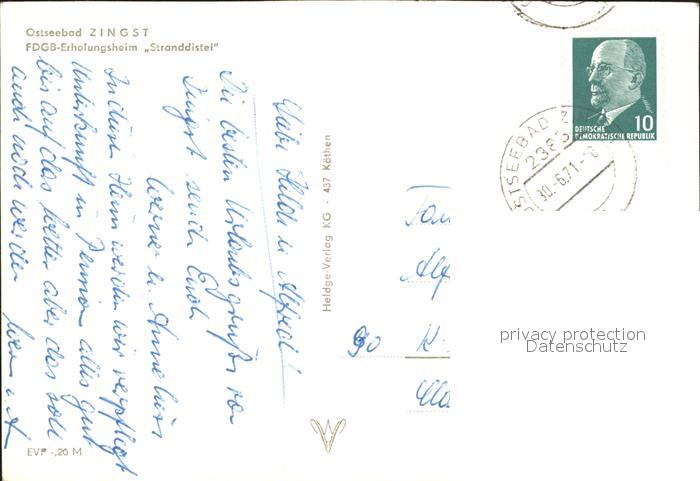 Ostseebad ZINGST
FDGB-Erholungsheim „Stranddistel"
Liebe Hilde u. Alfred!
Die besten Urlaubsgrüße von
Zingst sendet Euch
Werner u. Annelies
In diesem Heim werden wir verpflegt
Unterkunft in Pension alles gut
bis auf das Wetter aber das soll
auch noch werden
EVP -,20 M
Heldge-Verlag KG · 437 Köthen
DEUTSCHE
DEMOKRATISCHE REPUBLIK
10
OSTSEEBAD Z
2383
30.-6.71.-8
Fam
Alf
90 K
privacy protection
Datenschutz